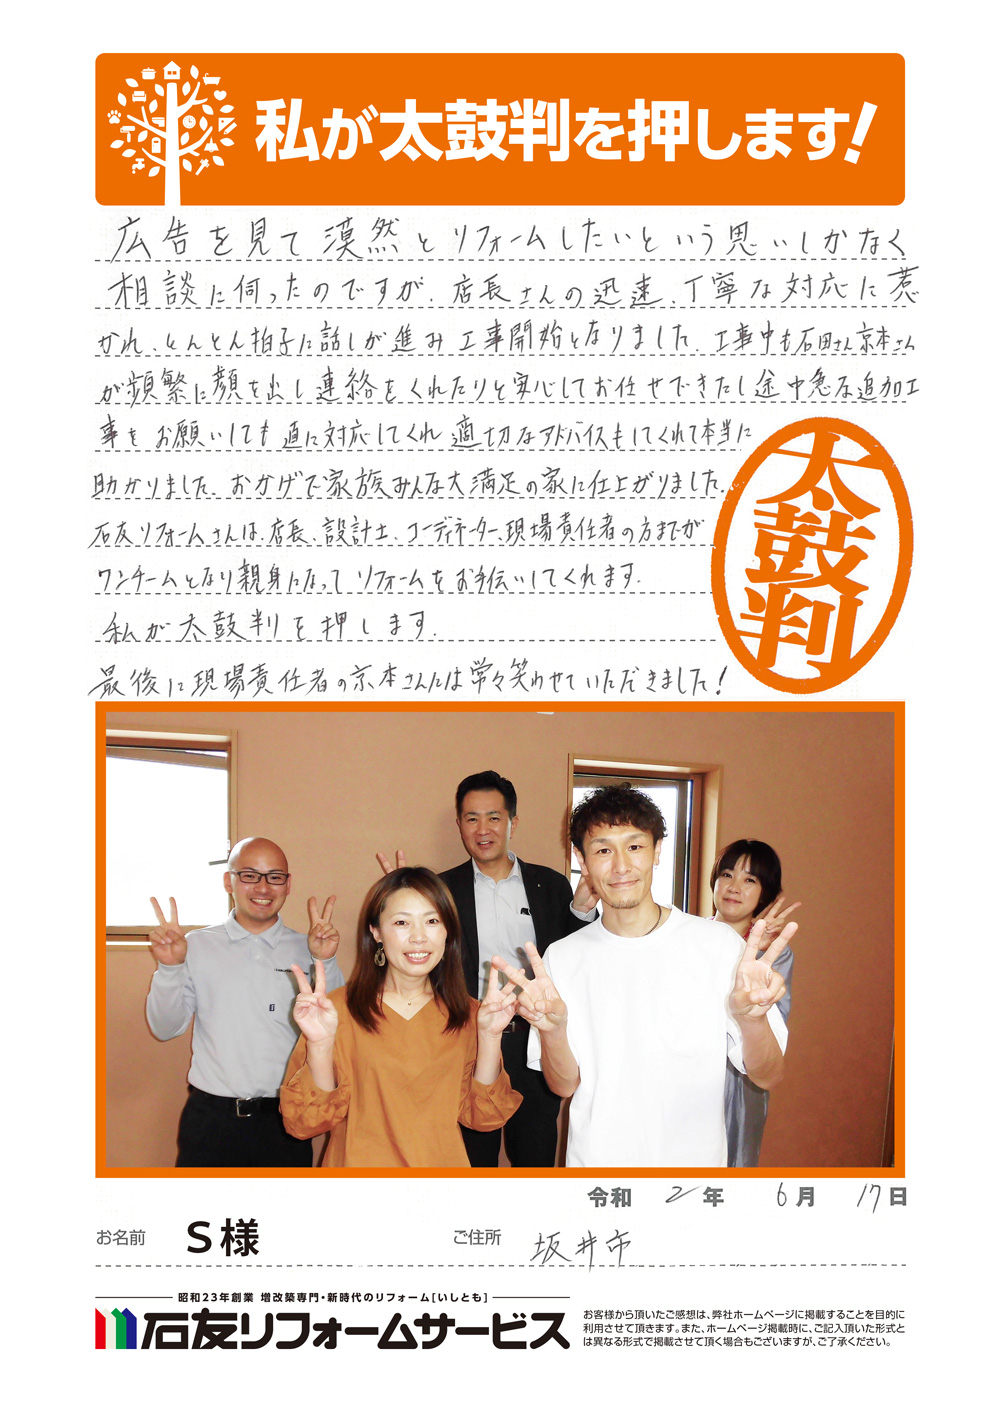 私が太鼓判を押します!
広告を見て漠然とリフォームしたいという思いしかなく
相談に伺ったのですが、店長さんの迅速、丁寧な対応に惹
かれ、とんとん拍子に話しが進み工事開始となりました。工事中も石田さん京本さん
が頻繁に顔を出し連絡をくれたりと安心してお任せできたし途中急な追加工
事をお願いしても直に対応してくれ適切なアドバイスもしてくれて本当に
助かりました。おかげで家族みんな大満足の家に仕上がりました。
石友リフォームさんは、店長、設計士、コーディネーター、現場責任者の方までが
ワンチームとなり親身になってリフォームをお手伝いしてくれます。
私が太鼓判を押します。
最後に現場責任者の京本さんには常々笑わせていただきました!
太鼓判
令和 2年 6月 17日
お名前 S様 ご住所 坂井市
昭和23年創業 増改築専門・新時代のリフォーム[いしとも]
石友リフォームサービス
お客様から頂いたご感想は、弊社ホームページに掲載することを目的に
利用させて頂きます。また、ホームページ掲載時に、ご記入頂いた形式と
は異なる形式で掲載させて頂く場合もございますが、ご了承ください。